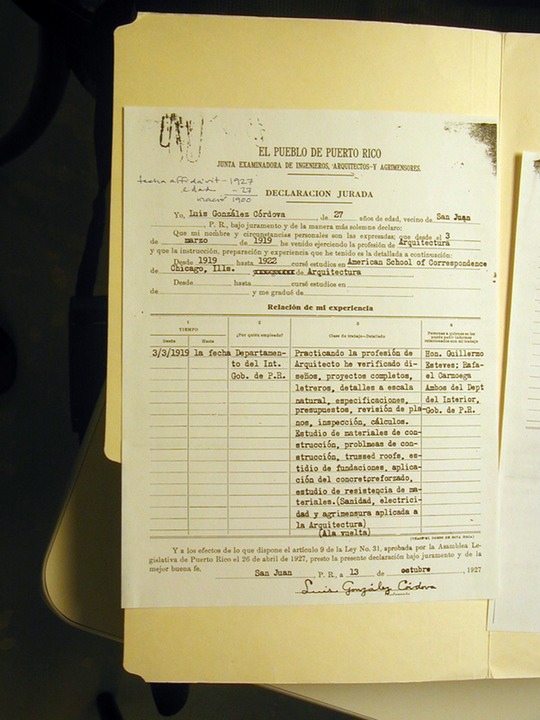 EL PUEBLO DE PUERTO RICO
JUNTA EXAMINADORA DE INGENIEROS, ARQUITECTOS Y AGRIMENSORES.
fecha affidavit - 1927
edad - 27
nació 1900
DECLARACION JURADA
Yo, Luis González Córdova, de 27 años de edad, vecino de San Juan
, P. R., bajo juramento y de la manera más solemne declaro:
Que mi nombre y circunstancias personales son las expresadas; que desde el 3
de marzo de 1919 he venido ejerciendo la profesión de Arquitectura
y que la instrucción, preparación y experiencia que he tenido es la detallada a continuación:
Desde 1919 hasta 1922 cursé estudios en American School of Correspondence
de Chicago, Ills. de Arquitectura
Desde hasta cursé estudios en
de y me gradué de
Relación de mi experiencia
1 2 3 4
TIEMPO
Desde Hasta
¿Por quién empleado?
Clase de trabajo—Detallado
Personas a quienes se les puede pedir informes relacionados con mi trabajo
3/3/1919 la fecha Departamen- Practicando la profesión de Hon. Guillermo
to del Int. Arquitecto he verificado di- Esteves; Rafa-
Gob. de P.R. seños, proyectos completos, el Carmoega
letreros, detalles a escala Ambos del Dept
natural, especificaciones, del Interior,
presupuestos, revisión de pla- Gob. de P.R.
nos, inspección, cálculos.
Estudio de materiales de con-
strucción, problmeas de con-
strucción, trussed roofs, es-
tidio de fundaciones, aplica-
ción del concretorefornado,
estudio de resistencia de ma-
teriales.(Sanidad, electrici-
dad y agrimensura aplicada a
la Arquitectura)
(Ala vuelta)
(VEASE AL DORSO DE ESTA HOJA)
Y a los efectos de lo que dispone el artículo 9 de la Ley No. 31, aprobada por la Asamblea Le-
gislativa de Puerto Rico el 26 de abril de 1927, presto la presente declaración bajo juramento y de la
mejor buena fe,
San Juan P. R., a 13 de octubre, 1927
Luis González Córdova